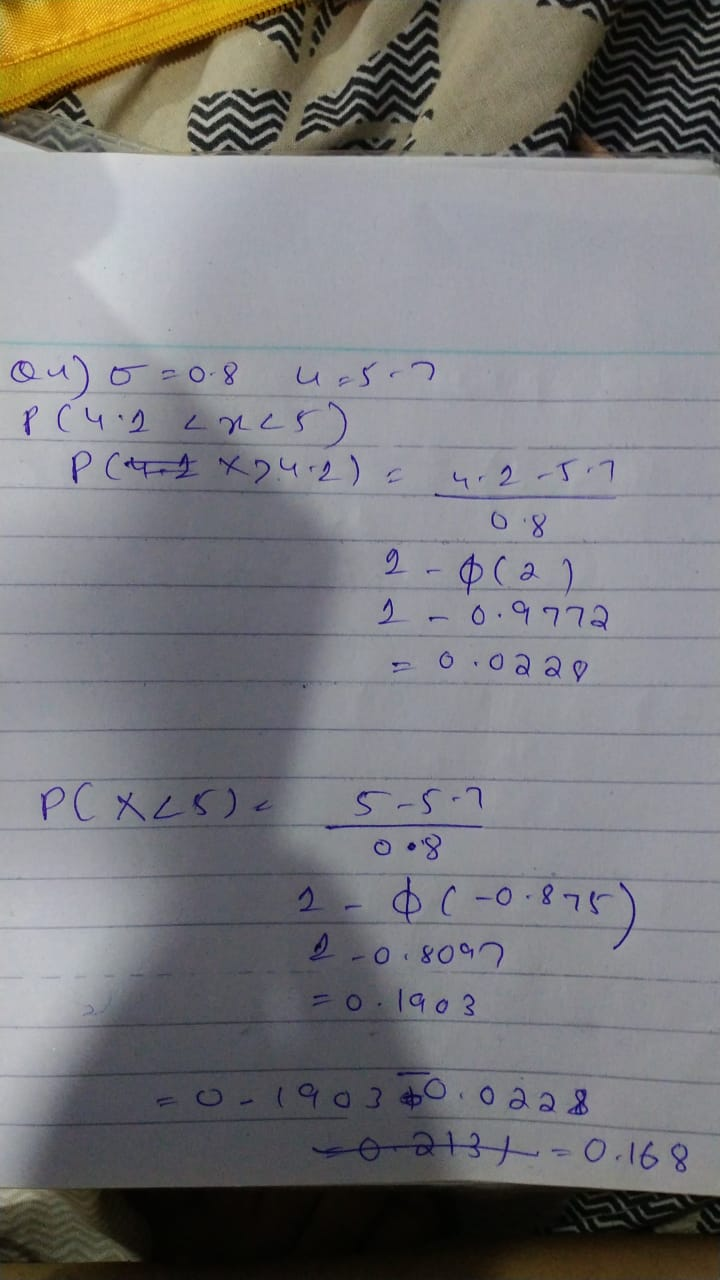 Q4) σ = 0.8 u = 5.7
P(4.2 < x < 5)
P( X > 4.2) = 4.2 - 5.7
0.8
1 - ϕ(2)
1 - 0.9772
= 0.0228
P( X < 5) = 5 - 5.7
0.8
1 - ϕ(-0.875)
1 - 0.8097
= 0.1903
= 0.1903 - 0.0228
= 0.2131 = 0.168